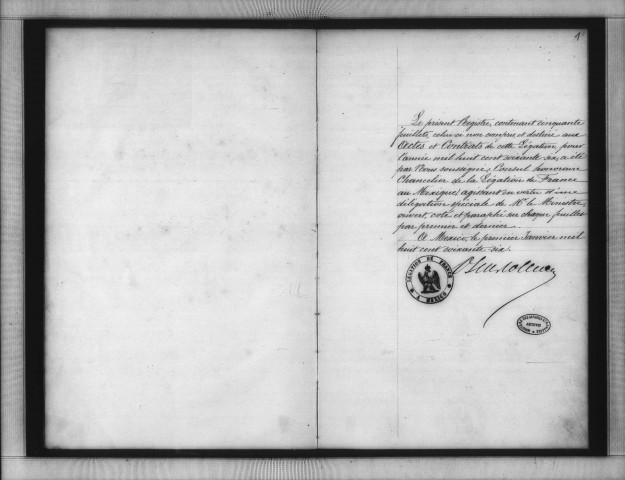 1
Le présent Registre, contenant cinquante
feuillets, celui ci non compris et destiné aux
Actes et Contrats de cette Légation pour
l'année mil huit cent soixante six, a été
par Nous soussigné, Consul honoraire
Chancelier de la Légation de France
au Mexique, agissant en vertu d'une
délégation spéciale de Mr. le Ministre,
ouvert, coté et paraphé sur chaque feuillet
par premier et dernier.
A Mexico, le premier Janvier mil
huit cent soixante six.
LÉGATION DE FRANCE
A MEXICO
ARCHIVES